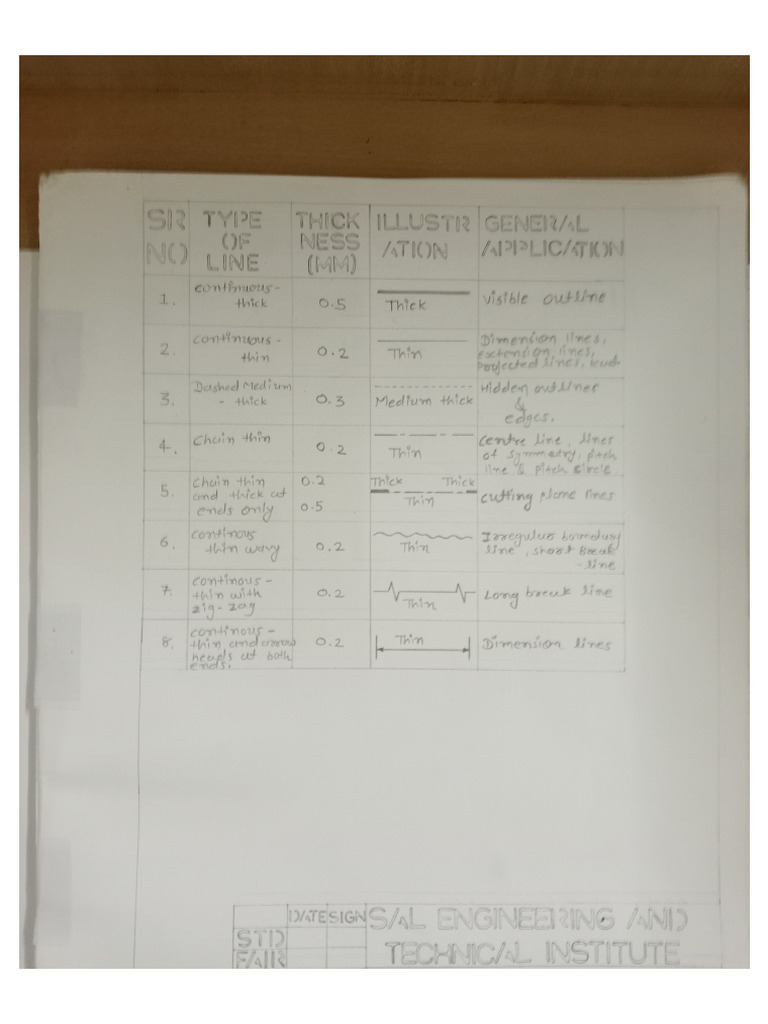 SR NO
TYPE OF LINE
THICK NESS (MM)
ILLUSTR ATION
GENERAL APPLICATION
1.
continuous-
thick
0.5
Thick
visible outline
2.
continuous-
thin
0.2
Thin
Dimension lines,
extension lines,
projected lines,
3.
Dashed Medium
- thick
0.3
Medium thick
Hidden outlines
&
edges.
4.
Chain thin
0.2
Thin
Centre line, lines
of symmetry, pitch
line & pitch circle
5.
Chain thin
and thick at
ends only
0.2
0.5
Thick Thick
Thin
cutting plane lines
6.
continous
thin wavy
0.2
Thin
Irregular boundary
line, short Break
-line
7.
continous-
thin with
zig-zag
0.2
Thin
Long break line
8.
continous-
thin and arrow
heads at both
ends.
0.2
Thin
Dimension lines
DATE SIGN
STD
FAIR
SAL ENGINEERING AND
TECHNICAL INSTITUTE